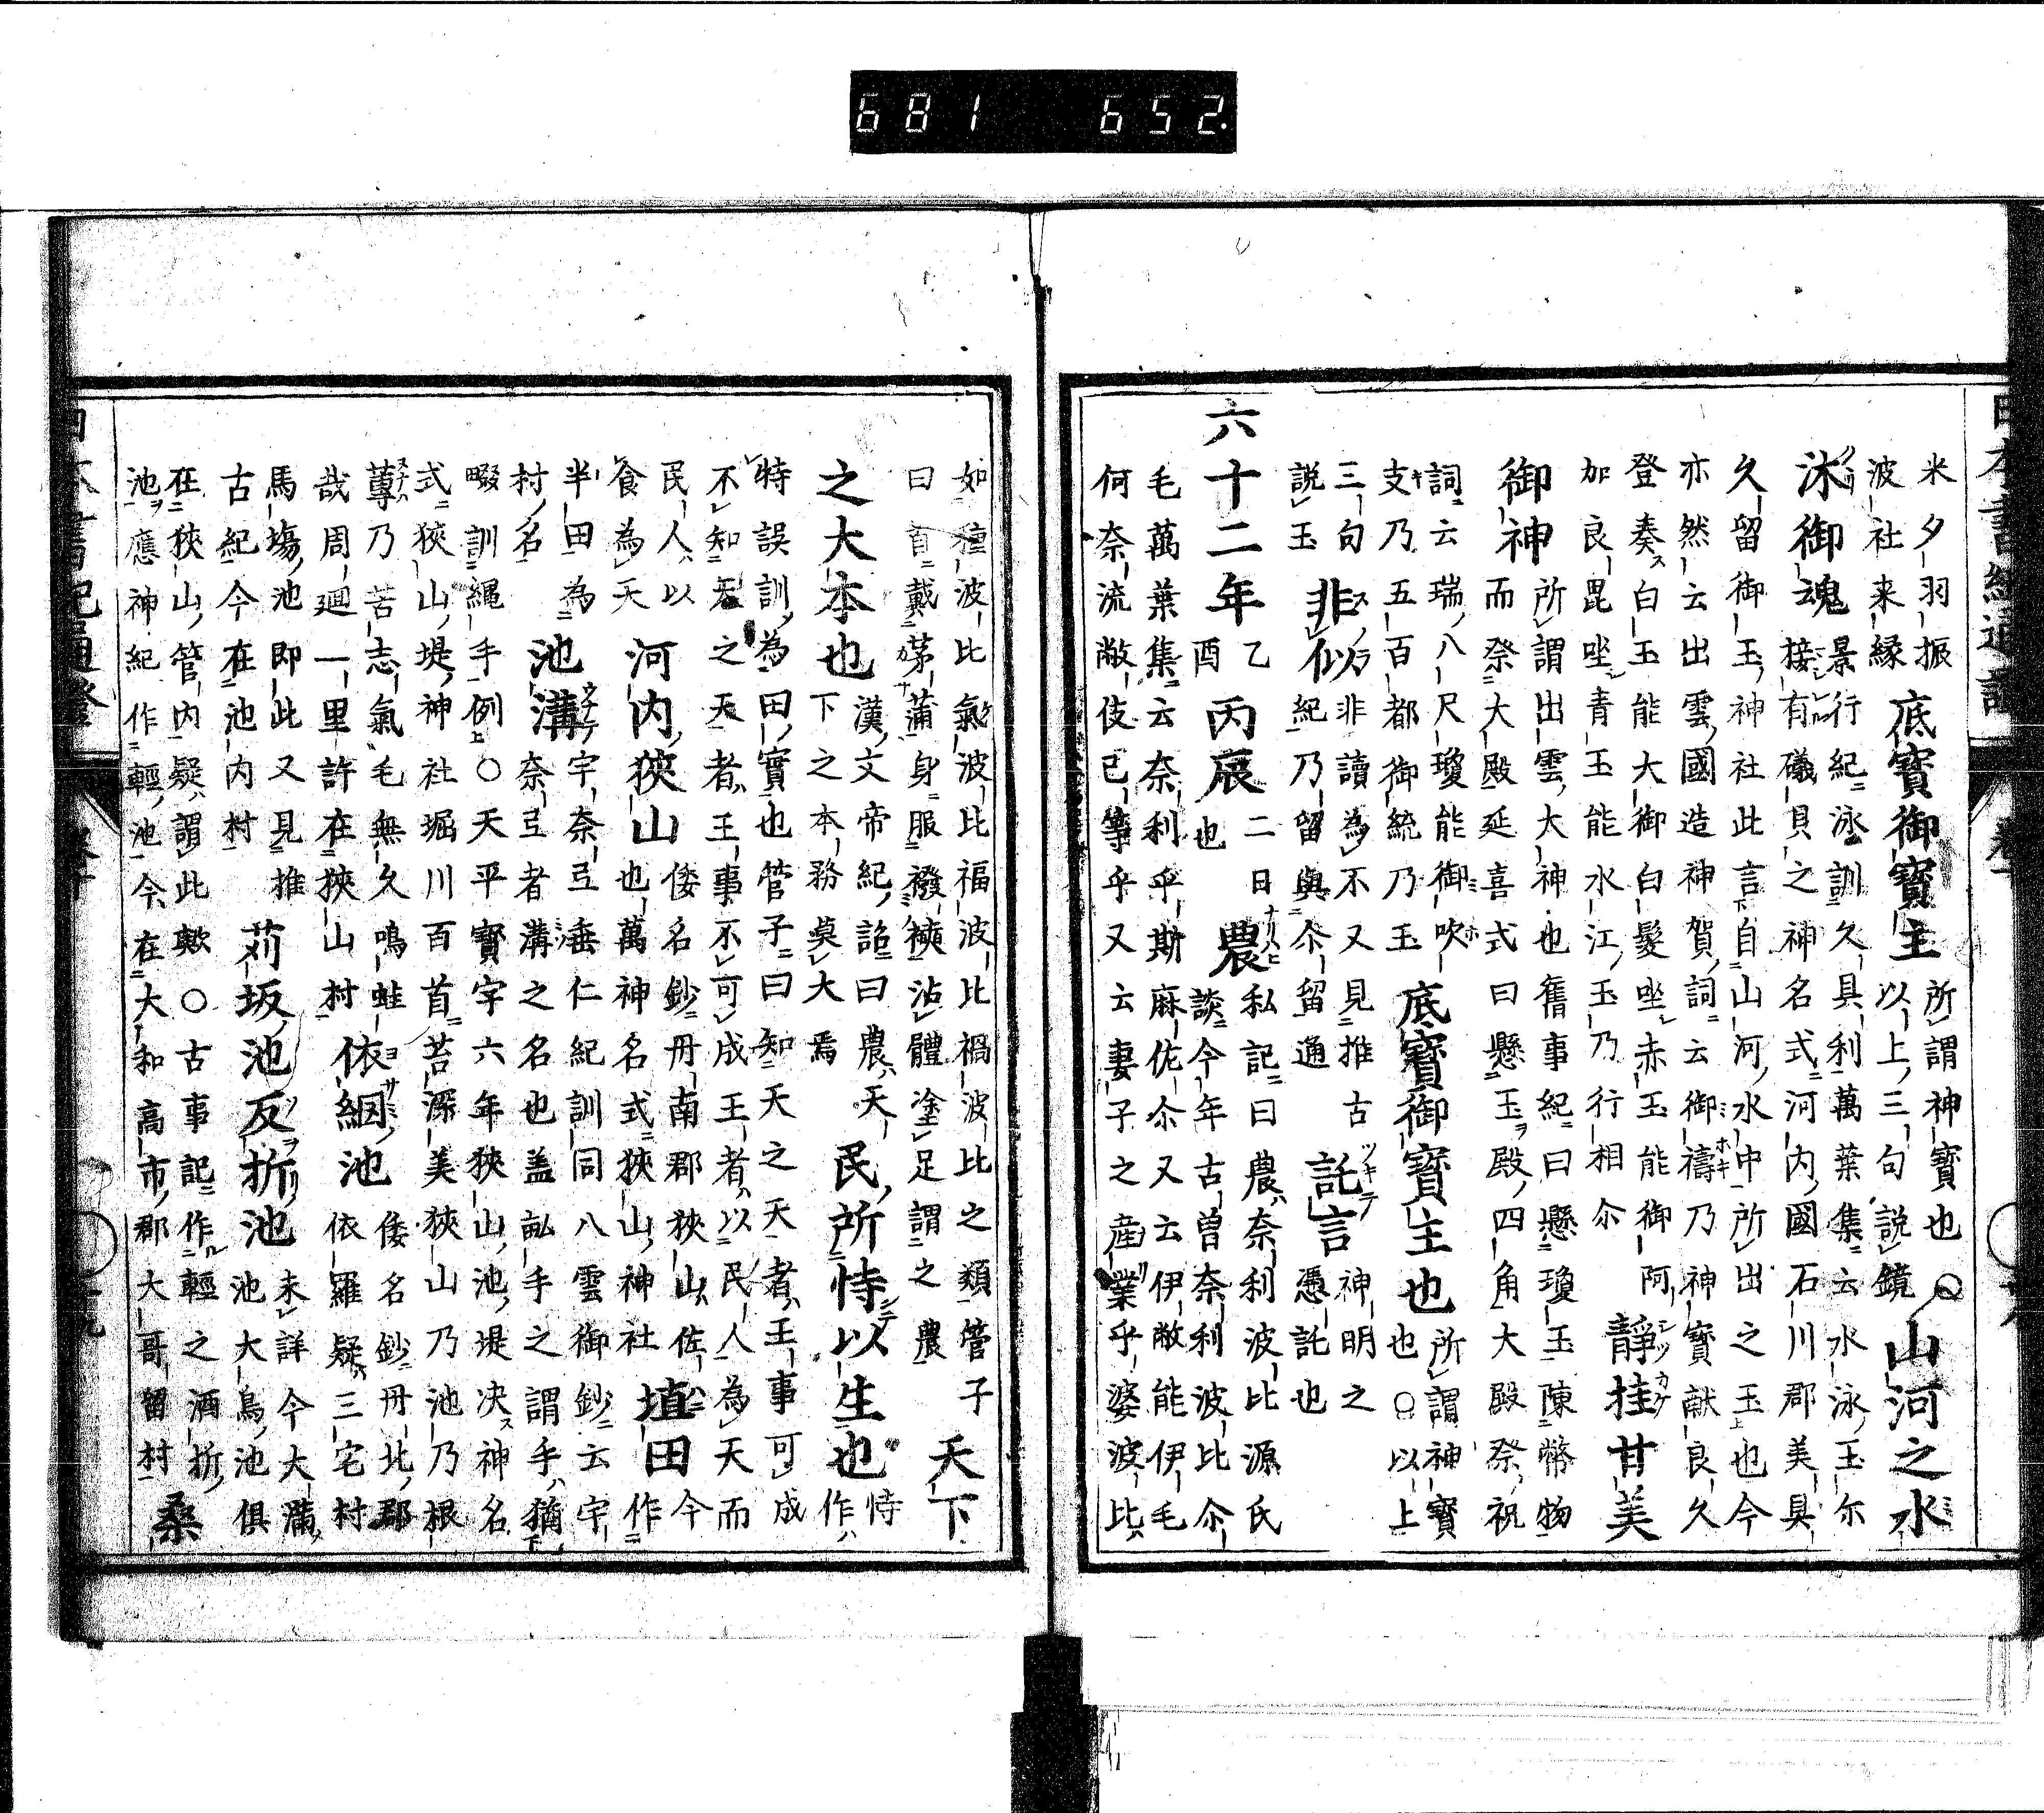 681 652.
米夕羽振
波社来縁
底寶御寶主
所謂神寶也○
以上三句説鏡
山河之水
泳御魂
景行紀泳訓久具利萬葉集云水泳玉尓
接有礒貝之神名式河内國石川郡美具
久留御玉神社此言自山河水中所出之玉也今
亦然云出雲國造神賀詞云御禱乃神寶献良久
登奏白玉能大御白髪坐赤玉能御阿
加良毘坐青玉能水江玉乃行相尒
靜挂甘美
御神
所謂出雲大神也舊事紀曰懸瓊玉陳幣物
而祭大殿延喜式曰懸玉殿四角大殿祭祝
詞云瑞八尺瓊能御吹
支乃五百都御統乃玉
底寶御寶主也
所謂神寶
也○以上
三句
説玉
非似
非讀為不又見推古
紀乃留與尒留通
託言
神明之
憑託也
六十二年
乙
酉
丙辰
二日
也
農
私記曰農奈利波比源氏
談今年古曽奈利波比尒
毛萬葉集云奈利乎斯麻佐尒又云伊敝能伊毛
何奈流敝伎已等乎又云妻子之産業乎婆波比
如種波比氣波比福波比禍波比之類管子
曰首戴茅蒲身服襏襫沾體塗足謂之農
天下
之大本也
漢文帝紀詔曰農天
下之本務莫大焉
民所恃以生也
恃
作
特誤訓為田寶也管子曰知天之天者王事可成
不知天之天者王事不可成王者以民人為天而
民人以
食為天
河内狹山
倭名鈔丹南郡狹山佐
也萬神名式狹山神社
埴田
今
作
半田
為
池溝
宇奈弖垂仁紀訓同八雲御鈔云宇
奈弖者溝之名也盖訛手之謂手猶
村名
畷訓縄手例○天平寳字六年狹山池堤决神名
式狹山堤神社堀川百首苔深美狹山乃池乃根
蓴乃苦志氣毛無久鳴蛙
哉周廻一里許在狹山村
依網池
倭名鈔丹北郡
依羅疑三宅村
馬塲池即此又見推
古紀今在池内村
苅坂池反折池
未詳今大満
池大鳥池俱
在狹山管内疑謂此歟○古事記作輕之酒折
池應神紀作輕池今在大和高市郡大哥留村
桑